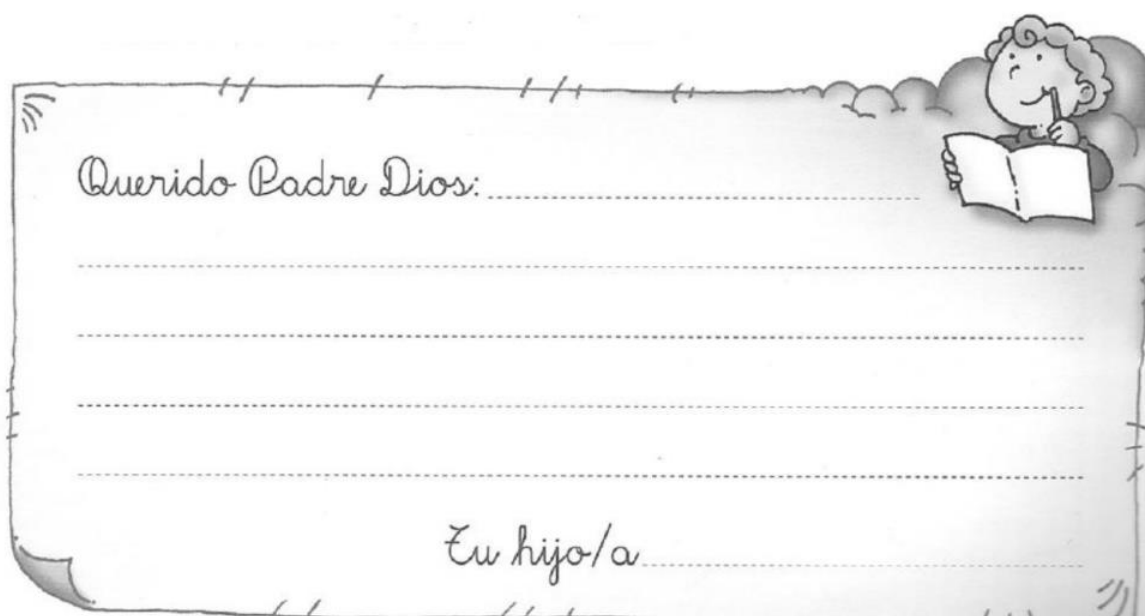 Querido Padre Dios:
Tu hijo/a